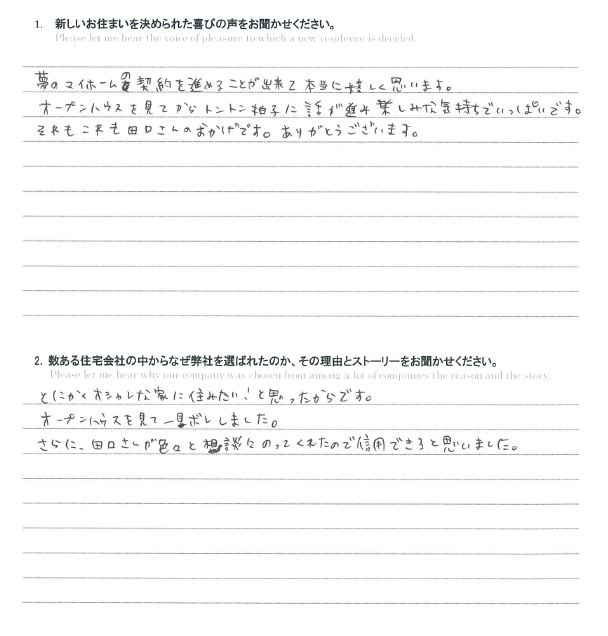 1. 新しいお住まいを決められた喜びの声をお聞かせください。
Please let me hear the voice of pleasure to which a new residence is decided.
夢のマイホームの契約を進めることが出来て本当に嬉しく思います。
オープンハウスを見てからトントン拍子に話が進み楽しみな気持ちでいっぱいです。
それもこれも田口さんのおかげです。ありがとうございます。
2. 数ある住宅会社の中からなぜ弊社を選ばれたのか、その理由とストーリーをお聞かせください。
Please let me hear why our company was chosen from among a lot of companies the reason and the story.
とにかくオシャレな家に住みたい!と思ったからです。
オープンハウスを見て一目ボレしました。
さらに、田口さんが色々と相談にのってくれたので信用できると思いました。